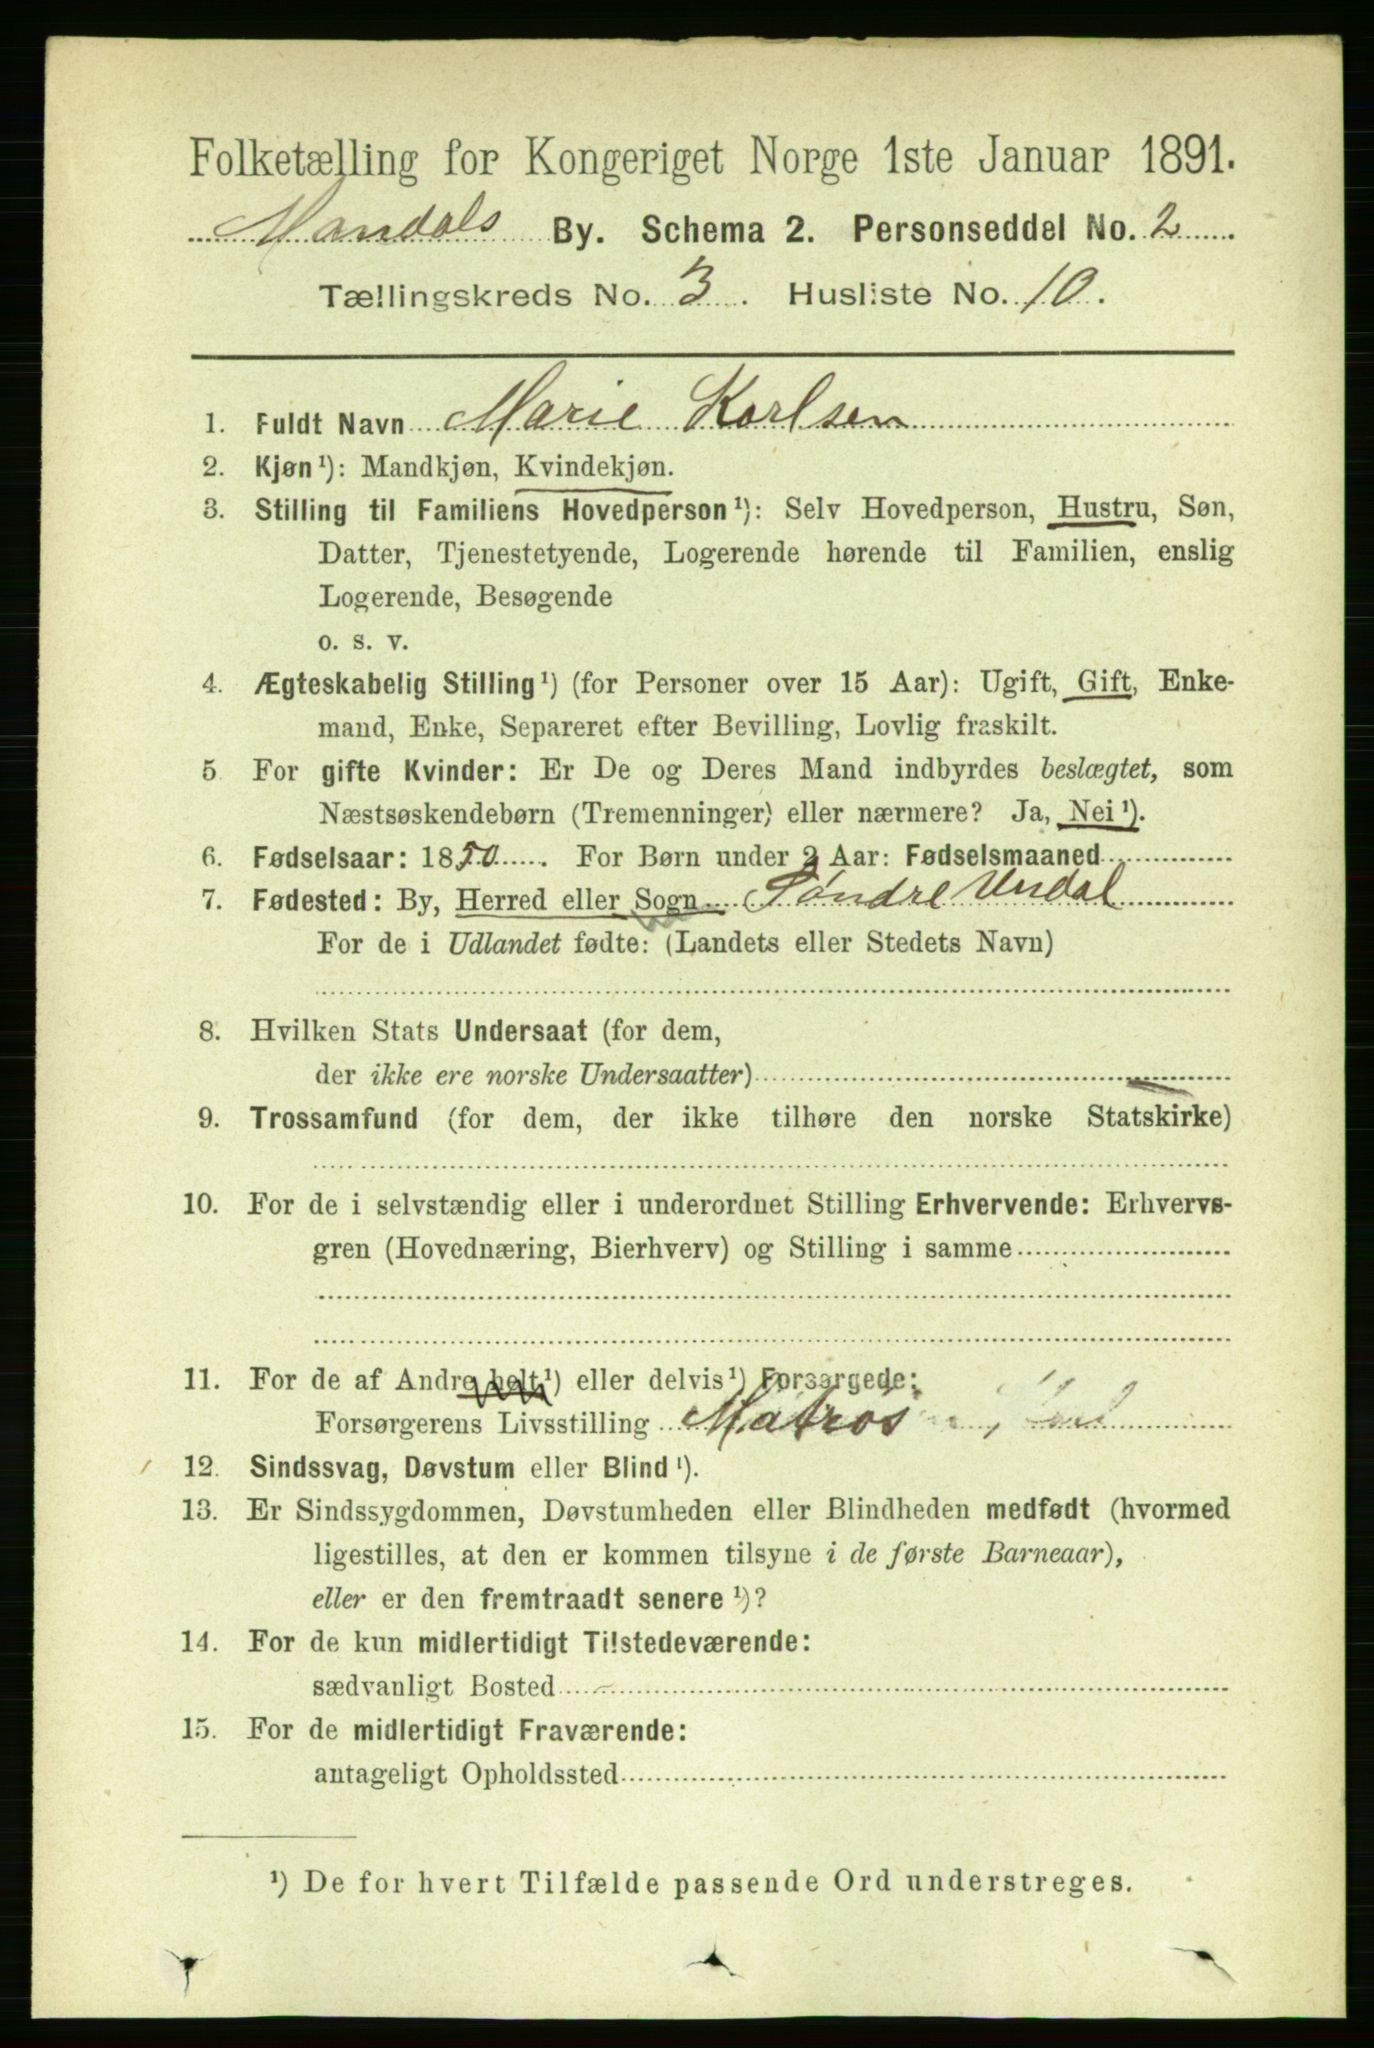 Folketælling for Kongeriget Norge 1ste Januar 1891.
Mandals By. Schema 2. Personseddel No. 2
Tællingskreds No. 3. Husliste No. 10.
1. Fuldt Navn Marie Karlsen
2. Kjøn ¹): Mandkjøn, Kvindekjøn.
3. Stilling til Familiens Hovedperson ¹): Selv Hovedperson, Hustru, Søn,
Datter, Tjenestetyende, Logerende hørende til Familien, enslig
Logerende, Besøgende
o. s. v.
4. Ægteskabelig Stilling ¹) (for Personer over 15 Aar): Ugift, Gift, Enke-
mand, Enke, Separeret efter Bevilling, Lovlig fraskilt.
5 For gifte Kvinder: Er De og Deres Mand indbyrdes beslægtet, som
Næstsøskendebørn (Tremenninger) eller nærmere? Ja, Nei ¹).
6. Fødselsaar: 1850. For Børn under 2 Aar: Fødselsmaaned
7. Fødested: By, Herred eller Sogn Søndre Undal
For de i Udlandet fødte: (Landets eller Stedets Navn)
8. Hvilken Stats Undersaat (for dem,
der ikke ere norske Undersaatter)
9. Trossamfund (for dem, der ikke tilhøre den norske Statskirke)
10. For de i selvstændig eller i underordnet Stilling Erhvervende: Erhvervs-
gren (Hovednæring, Bierhverv) og Stilling i samme
11. For de af Andre helt ¹) eller delvis ¹) Forsørgede:
Forsørgerens Livsstilling Matros
12. Sindssvag, Døvstum eller Blind ¹).
13. Er Sindssygdommen, Døvstumheden eller Blindheden medfødt (hvormed
ligestilles, at den er kommen tilsyne i de første Barneaar),
eller er den fremtraadt senere ¹)?
14. For de kun midlertidigt Tilstedeværende:
sædvanligt Bosted
15. For de midlertidigt Fraværende:
antageligt Opholdssted
¹) De for hvert Tilfælde passende Ord understreges.